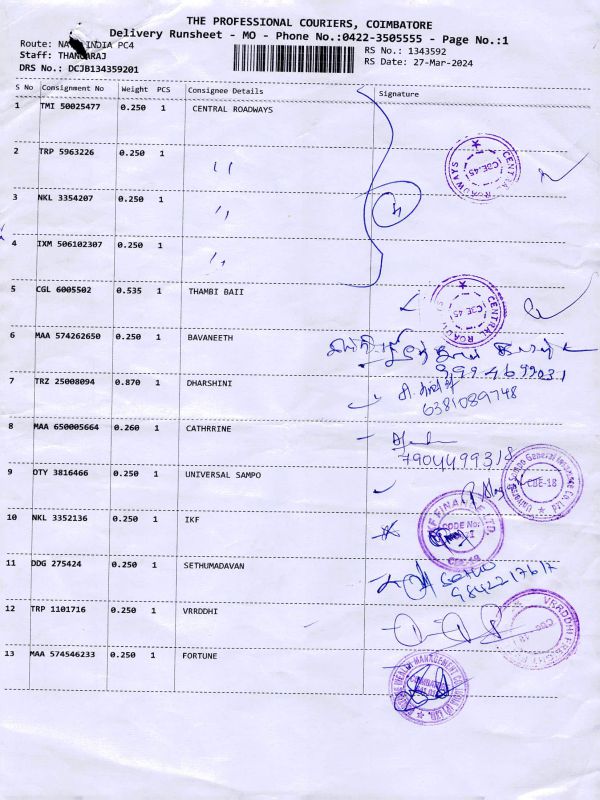 THE PROFESSIONAL COURIERS, COIMBATORE
Delivery Runsheet - MO - Phone No.:0422-3505555 - Page No.:1
Route: NAVA INDIA PC4
RS No.: 1343592
Staff: THANGARAJ
RS Date: 27-Mar-2024
DRS No.: DCJB134359201
S No Consignment No Weight PCS Consignee Details Signature
1 TMI 50025477 0.250 1 CENTRAL ROADWAYS
2 TRP 5963226 0.250 1 ''
CENTRAL ROADWAYS CBE-45
3 NKL 3354207 0.250 1 ''
4
4 IXM 506102307 0.250 1 ''
5 CGL 6005502 0.535 1 THAMBI BAII
CENTRAL ROADWAYS CBE-45
6 MAA 574262650 0.250 1 BAVANEETH
7 TRZ 25008094 0.870 1 DHARSHINI
6381089748
8 MAA 650005664 0.260 1 CATHRRINE
7904499318
9 DTY 3816466 0.250 1 UNIVERSAL SAMPO
Universal Sompo General Insurance Co. Ltd CBE-18
10 NKL 3352136 0.250 1 IKF
IKF FINANCE LTD. CODE No: CBE-18
11 DDG 275424 0.250 1 SETHUMADAVAN
Sethu
12 TRP 1101716 0.250 1 VRRDDHI
VRRDDHI CBE-18
13 MAA 574546233 0.250 1 FORTUNE
WEALTH MANAGEMENT